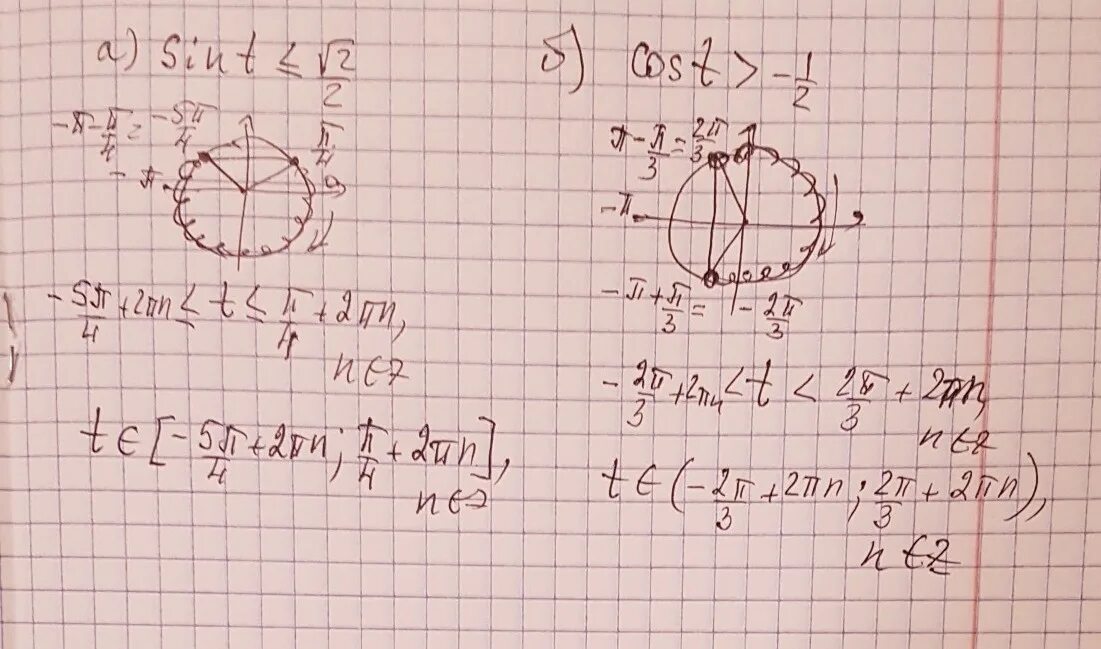 а) sin t ≤ √2/2
-π-π/4 = -5π/4
π/4
-π
0
-5π/4 + 2πn ≤ t ≤ π/4 + 2πn,
n ∈ Z
t ∈ [-5π/4 + 2πn; π/4 + 2πn],
n ∈ Z
б) cos t > -1/2
π - π/3 = 2π/3
-π
-π + π/3 = -2π/3
-2π/3 + 2πn < t < 2π/3 + 2πn,
n ∈ Z
t ∈ (-2π/3 + 2πn; 2π/3 + 2πn),
n ∈ Z